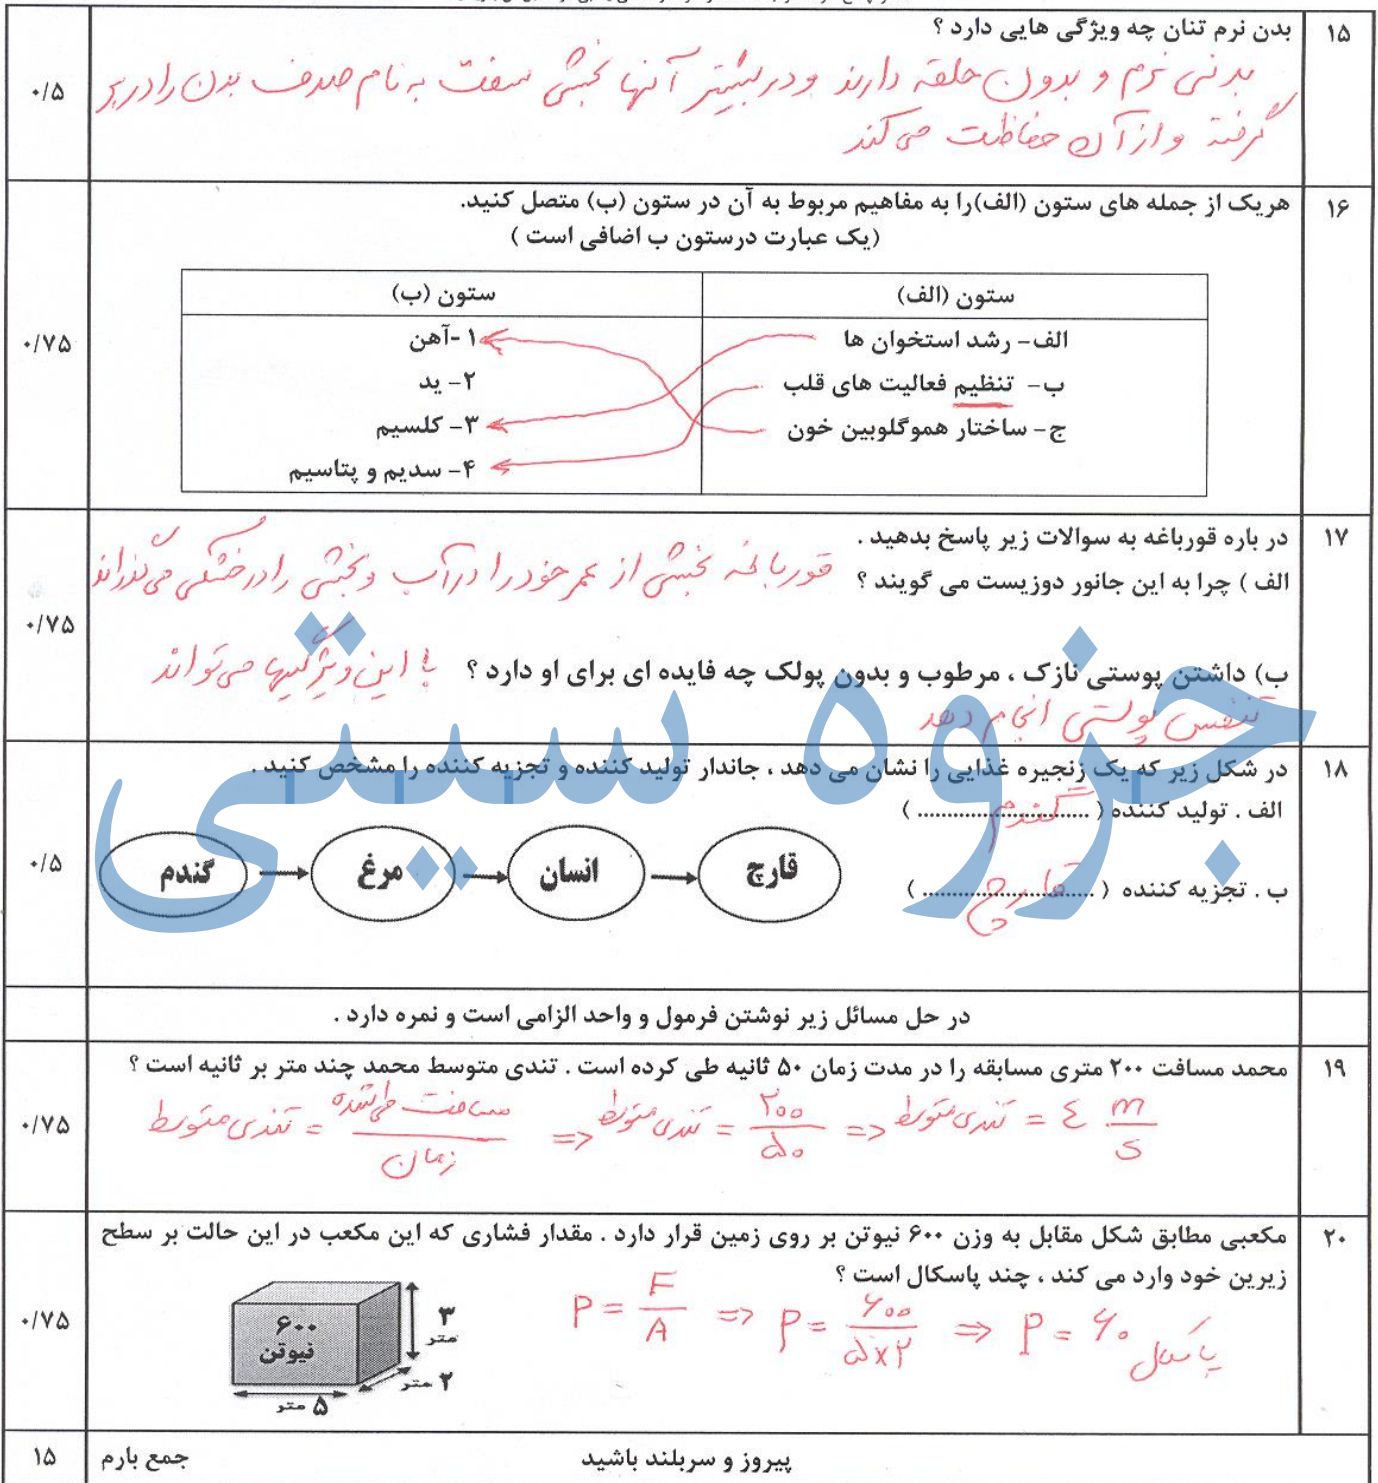 ۱۵
بدن نرم تنان چه ویژگی هایی دارد ؟
بدنی نرم و بدون حلقه دارند و در بیشتر آنها بخشی سفت به نام صدف بدن را در بر
گرفته و از آن حفاظت می کند
۰/۵
۱۶
هریک از جمله های ستون (الف)را به مفاهیم مربوط به آن در ستون (ب) متصل کنید.
(یک عبارت درستون ب اضافی است )
ستون (الف)
ستون (ب)
الف- رشد استخوان ها
۱-آهن
ب- تنظیم فعالیت های قلب
۲- ید
ج- ساختار هموگلوبین خون
۳- کلسیم
۴- سدیم و پتاسیم
۰/۷۵
۱۷
در باره قورباغه به سوالات زیر پاسخ بدهید .
الف ) چرا به این جانور دوزیست می گویند ؟ قورباغه بخشی از عمر خود را در آب و بخشی را در خشکی می گذراند
ب) داشتن پوستی نازک ، مرطوب و بدون پولک چه فایده ای برای او دارد ؟ با این ویژگیها می تواند
تنفس پوستی انجام دهد
۰/۷۵
جزوه سیتی
۱۸
در شکل زیر که یک زنجیره غذایی را نشان می دهد ، جاندار تولید کننده و تجزیه کننده را مشخص کنید .
الف . تولید کننده ( گندم )
ب . تجزیه کننده ( قارچ )
گندم → مرغ → انسان → قارچ
۰/۵
در حل مسائل زیر نوشتن فرمول و واحد الزامی است و نمره دارد .
۱۹
محمد مسافت ۲۰۰ متری مسابقه را در مدت زمان ۵۰ ثانیه طی کرده است . تندی متوسط محمد چند متر بر ثانیه است ؟
تندی متوسط = مسافت طی شده / زمان => تندی متوسط = ۲۰۰ / ۵۰ => تندی متوسط = ٤ m/s
۰/۷۵
۲۰
مکعبی مطابق شکل مقابل به وزن ۶۰۰ نیوتن بر روی زمین قرار دارد . مقدار فشاری که این مکعب در این حالت بر سطح
زیرین خود وارد می کند ، چند پاسکال است ؟
P = F / A => P = ۶۰۰ / ۵×۲ => P = ۶۰ پاسکال
۶۰۰
نیوتن
۳
متر
۲ متر
۵ متر
۰/۷۵
پیروز و سربلند باشید
جمع بارم
۱۵